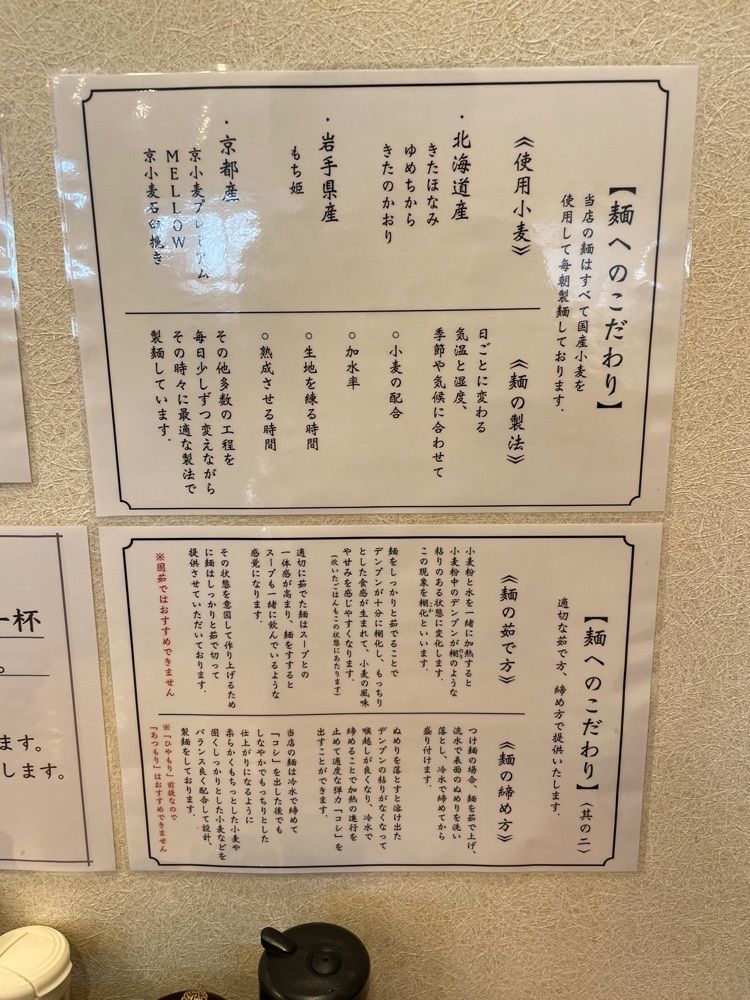 【麺へのこだわり】
当店の麺はすべて国産小麦を
使用して毎朝製麺しております。
《使用小麦》
・北海道産
きたほなみ
ゆめちから
きたのかおり
・岩手県産
もち姫
・京都産
京小麦プレミアム
MELLOW
京小麦石臼挽き
《麺の製法》
日ごとに変わる
気温と湿度、
季節や気候に合わせて
○小麦の配合
○加水率
○生地を練る時間
○熟成させる時間
その他多数の工程を
毎日少しずつ変えながら
その時々に最適な製法で
製麺しています。
【麺へのこだわり】〈其の二〉
適切な茹で方、締め方で提供いたします。
《麺の茹で方》
小麦粉と水を一緒に加熱すると
小麦粉中のデンプンが糊のような
粘りのある状態に変化します。
この現象を糊化といいます。
麺をしっかりと茹でることで
デンプンが十分に糊化し、もっちり
とした食感が生まれて、小麦の風味
や甘みを感じやすくなります。
(炊いたごはんもこの状態にあたります)
適切に茹でた麺はスープとの
一体感が高まり、麺をすすると
スープも一緒に飲んでいるような
感覚になります。
その状態を意図して作り上げるため
に麺はしっかりと茹で切って
提供させていただいております。
※固茹ではおすすめできません
《麺の締め方》
つけ麺の場合、麺を茹で上げ、
流水で表面のぬめりを洗い
落とし、冷水で締めてから
盛り付けます。
ぬめりを落とすと溶け出た
デンプンの粘りがなくなって
喉越しが良くなり、冷水で
締めることで加熱の進行を
止めて適度な弾力「コシ」を
出すことができます。
当店の麺は冷水で締めて
「コシ」を出した後でも
しなやかでもっちりとした
仕上がりになるように
柔らかくもちっとした小麦や
固くしっかりとした小麦などを
バランス良く配合して設計、
製麺をしております。
※「ひやもり」前提なので
「あつもり」はおすすめできません
一杯
。
ます。
します。